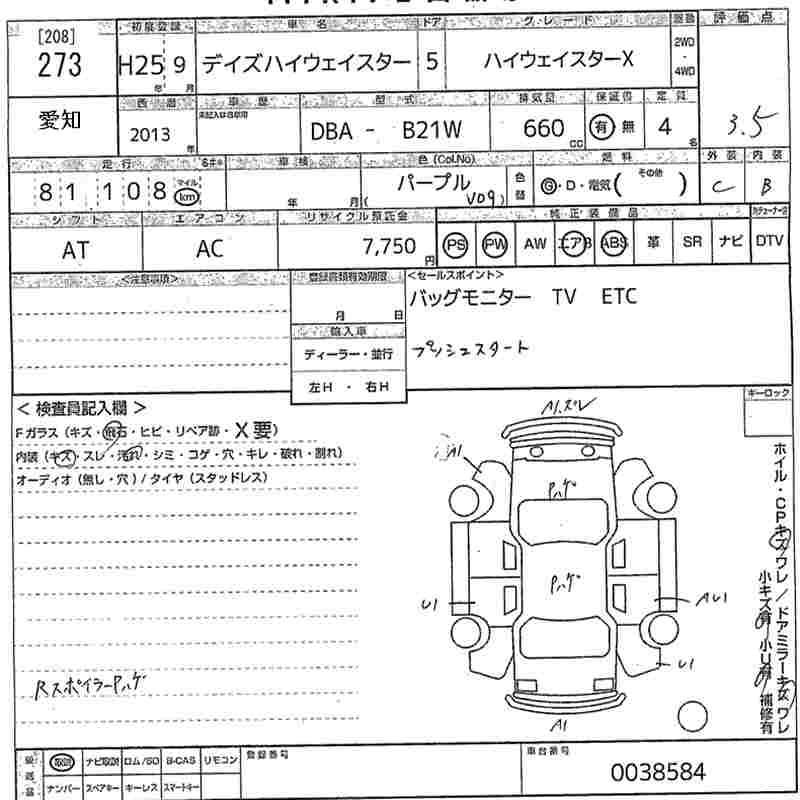 [208]
273
初度登録 車名 ドア グレード 評価点
H25年 9月 デイズハイウェイスター 5 ハイウェイスターX 2WD・4WD
愛知
西暦 車歴 型式 排気量 保証書 定員
2013年 DBA - B21W 660cc 有 無 4名
3.5
走行 車検 色(Col.No) 燃料 外装 内装
81,108 マイル km 年 月 パープル ( V09 ) 色替 G・D・電気( その他 ) C B
シフト エアコン リサイクル預託金 純正装備品
AT AC 7,750円 PS PW AW エアB ABS 革 SR ナビ DTV
<注意事項> 登録書類有効期限 <セールスポイント>
月 日
バッグモニター TV ETC
輸入車
ディーラー・並行
プッシュスタート
左H ・ 右H
<検査員記入欄>
キーロック
Fガラス(キズ・飛石・ヒビ・リペア跡・X要)
内装(キズ・スレ・汚れ・シミ・コゲ・穴・キレ・破れ・割れ)
オーディオ(無し・穴)/タイヤ(スタッドレス)
A1.ズレ
A1
Pハゲ
Pハゲ
U1
AU1
U1
A1
ホイル・CPキズワレ/ドアミラーキズワレ
小キズ有 小U有 補修有
RスポイラーPハゲ
取説 ナビ取説 ロム/SD B-CAS リモコン
ナンバー スペアキー キーレス スマートキー
登録番号
車台番号
0038584